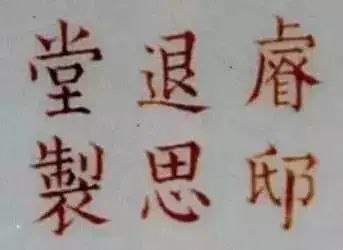 睿邸
退思
堂製